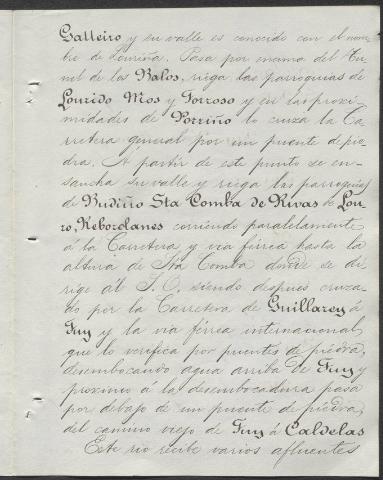 Galleiro y su valle es conocido con el nom-
bre de Louriña. Pasa por encima del tu-
nel de los Valos, riega las parroquias de
Lourido Mos y Torroso y en las proxi-
midades de Porriño lo cruza la Ca-
rretera general por un puente de pie-
dra. A partir de este punto se en-
sancha su valle y riega las parroquias
de Budiño Sta Comba de Rivas de Lou-
ro, Rebordanes corriendo paralelamente
á la Carretera y via férrea hasta la
altura de Sta Comba donde se di-
rige al S.O. siendo despues cruza-
do por la Carretera de Guillarey á
Tuy y la via férrea internacional
que lo verifica por puentes de piedra,
desembocando agua arriba de Tuy y
proximo á la desembocadura pasa
por debajo de un puente de piedra
del camino viejo de Tuy á Caldelas
Este rio recibe varios afluentes